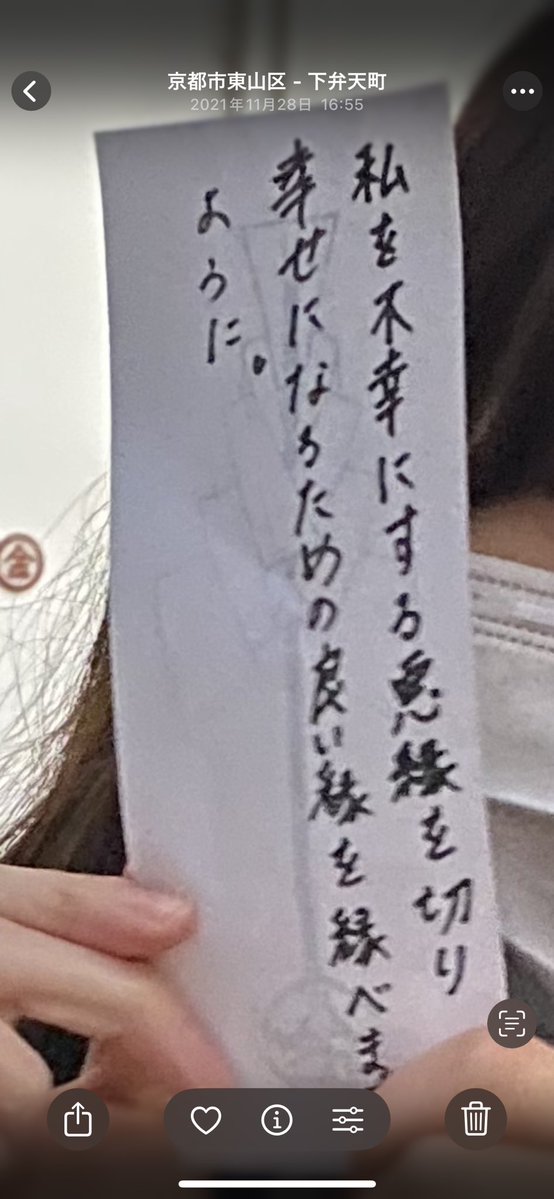 京都市東山区 – 下弁天町
2021年11月28日 16:55
私を不幸にする悪縁を切り
幸せになるための良い縁を縁べま
ように。